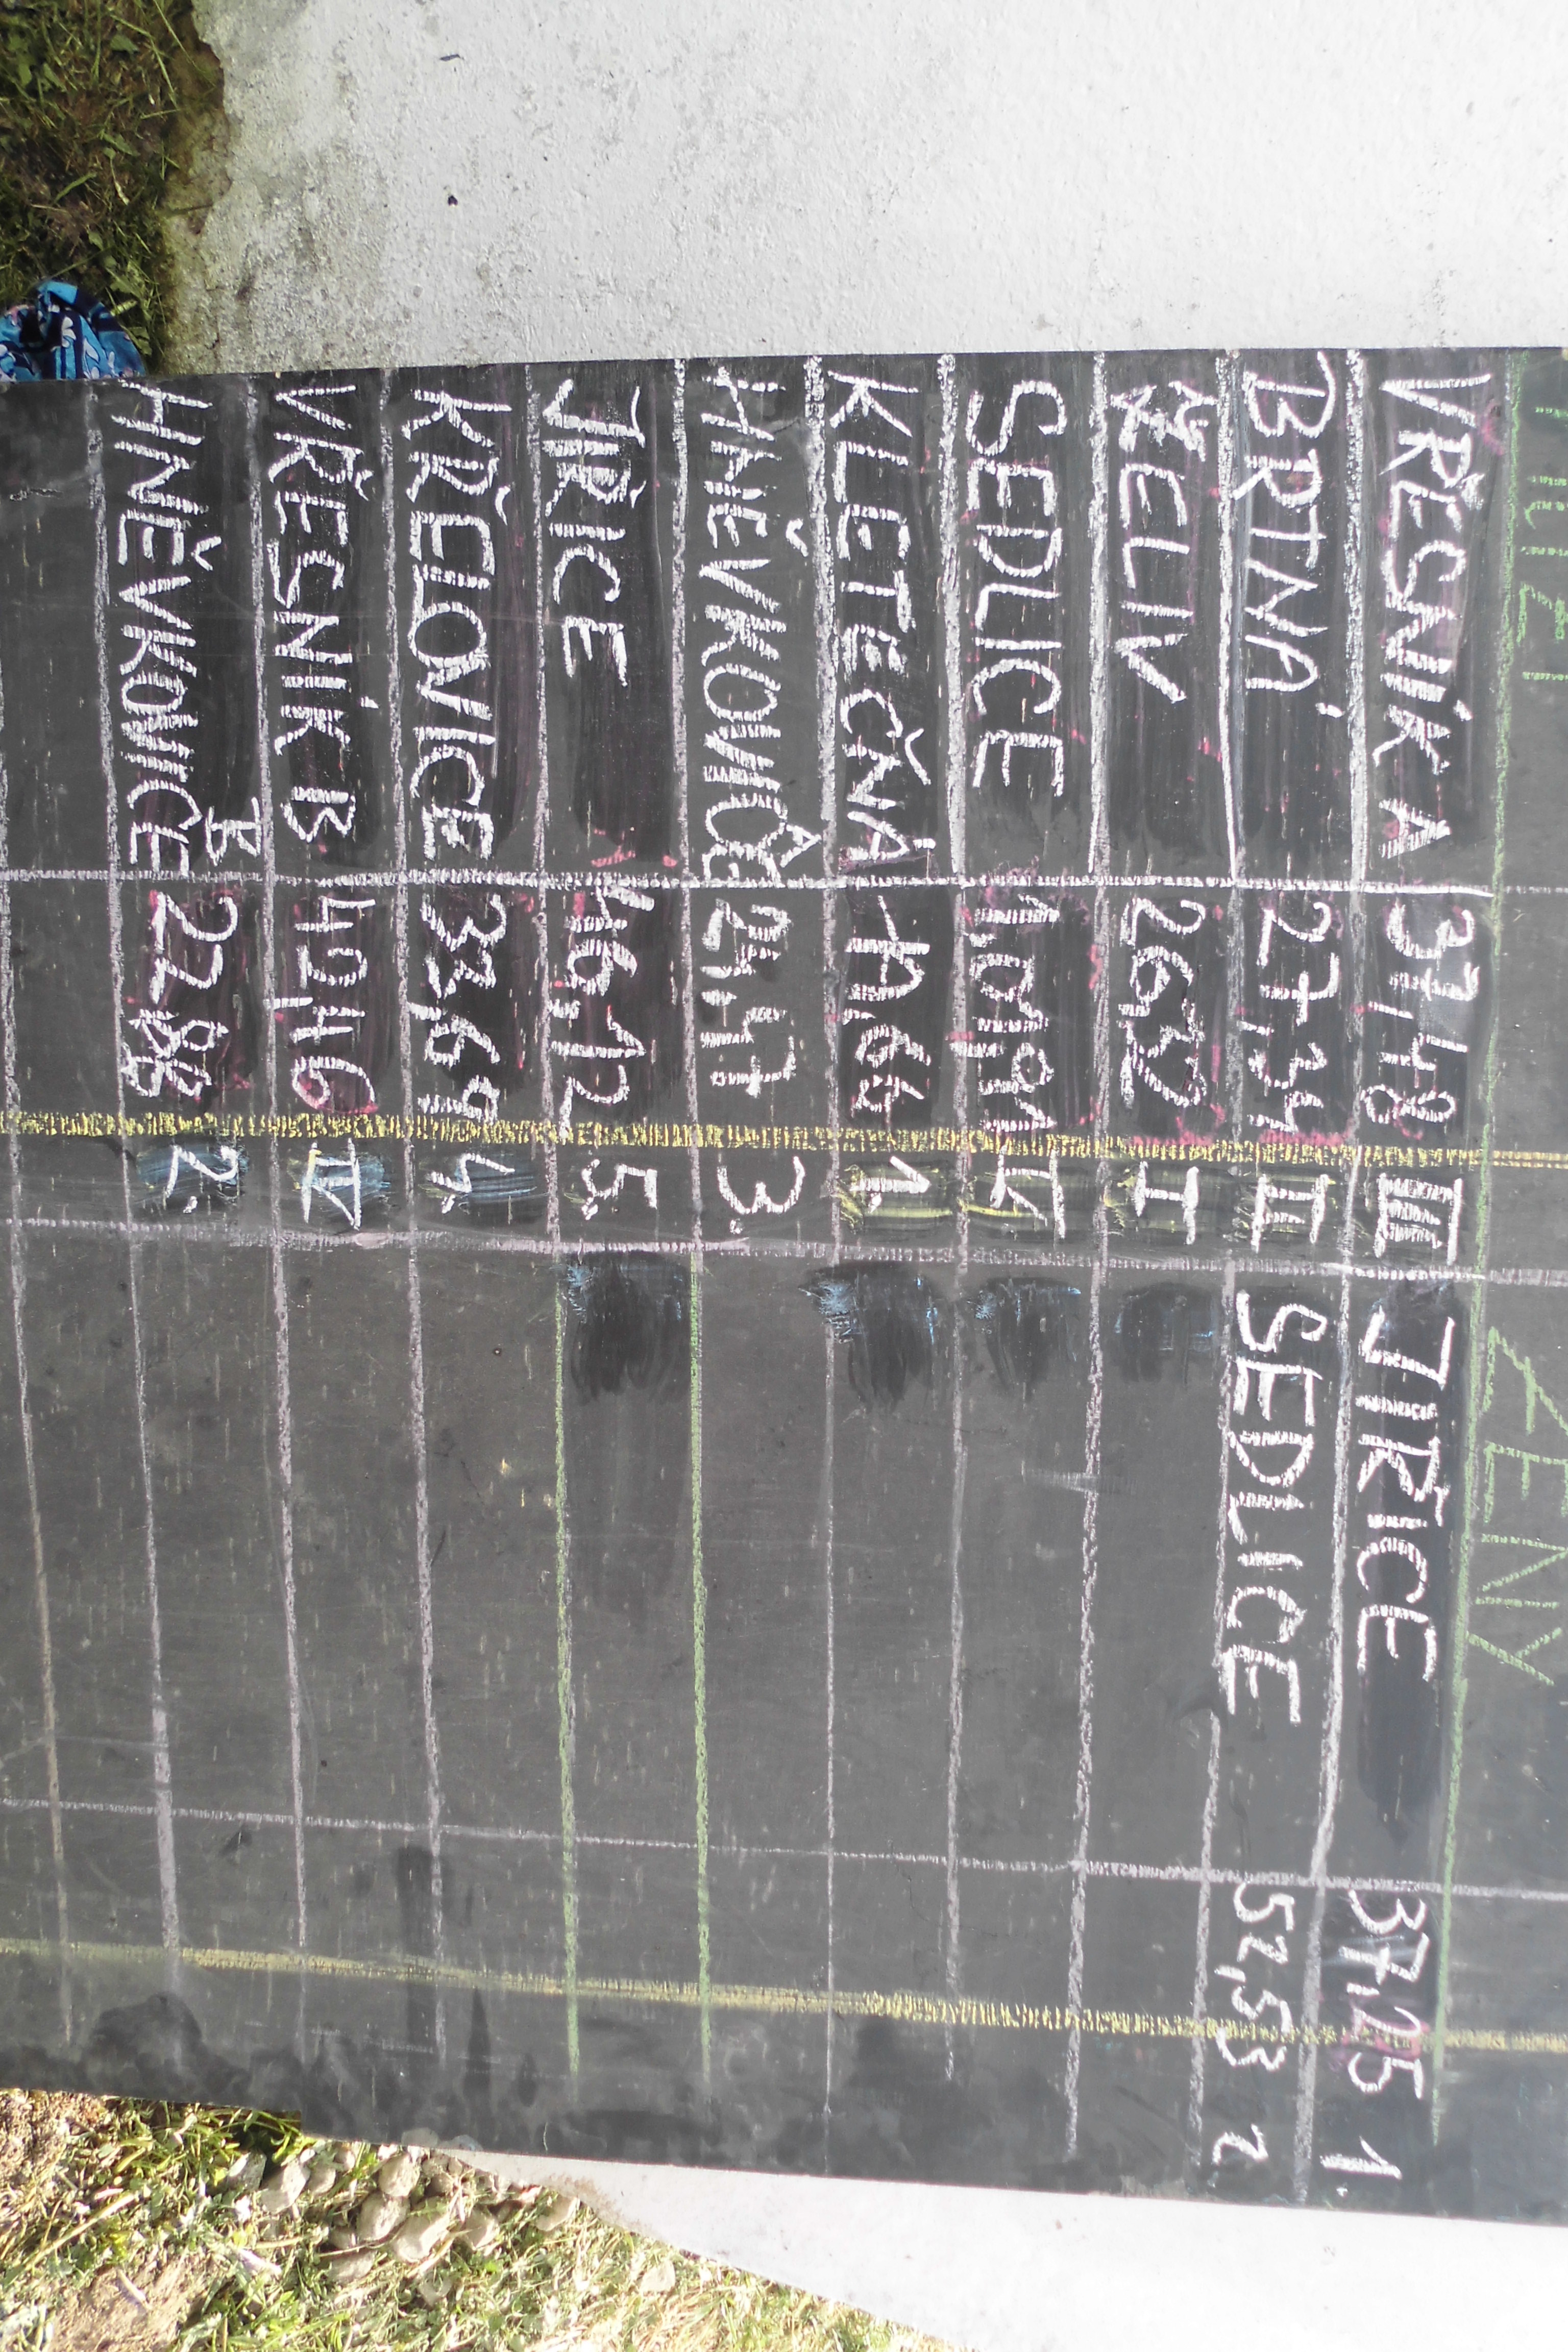 ŽENY
VŘESNÍK A 37,48 III JIŘICE 37,25 1.
BRTNÁ 27,34 II SEDLICE 52,53 2
ŽELIV 26,32 I
SEDLICE 1.01,91 V
KLETEČNÁ 1.
HNĚVKOVICE A 24,47 3.
JIŘICE 46,12 5.
KŘELOVICE 33,69 4.
VŘESNÍK B 42,46 IV
HNĚVKOVICE B 22,88 2.